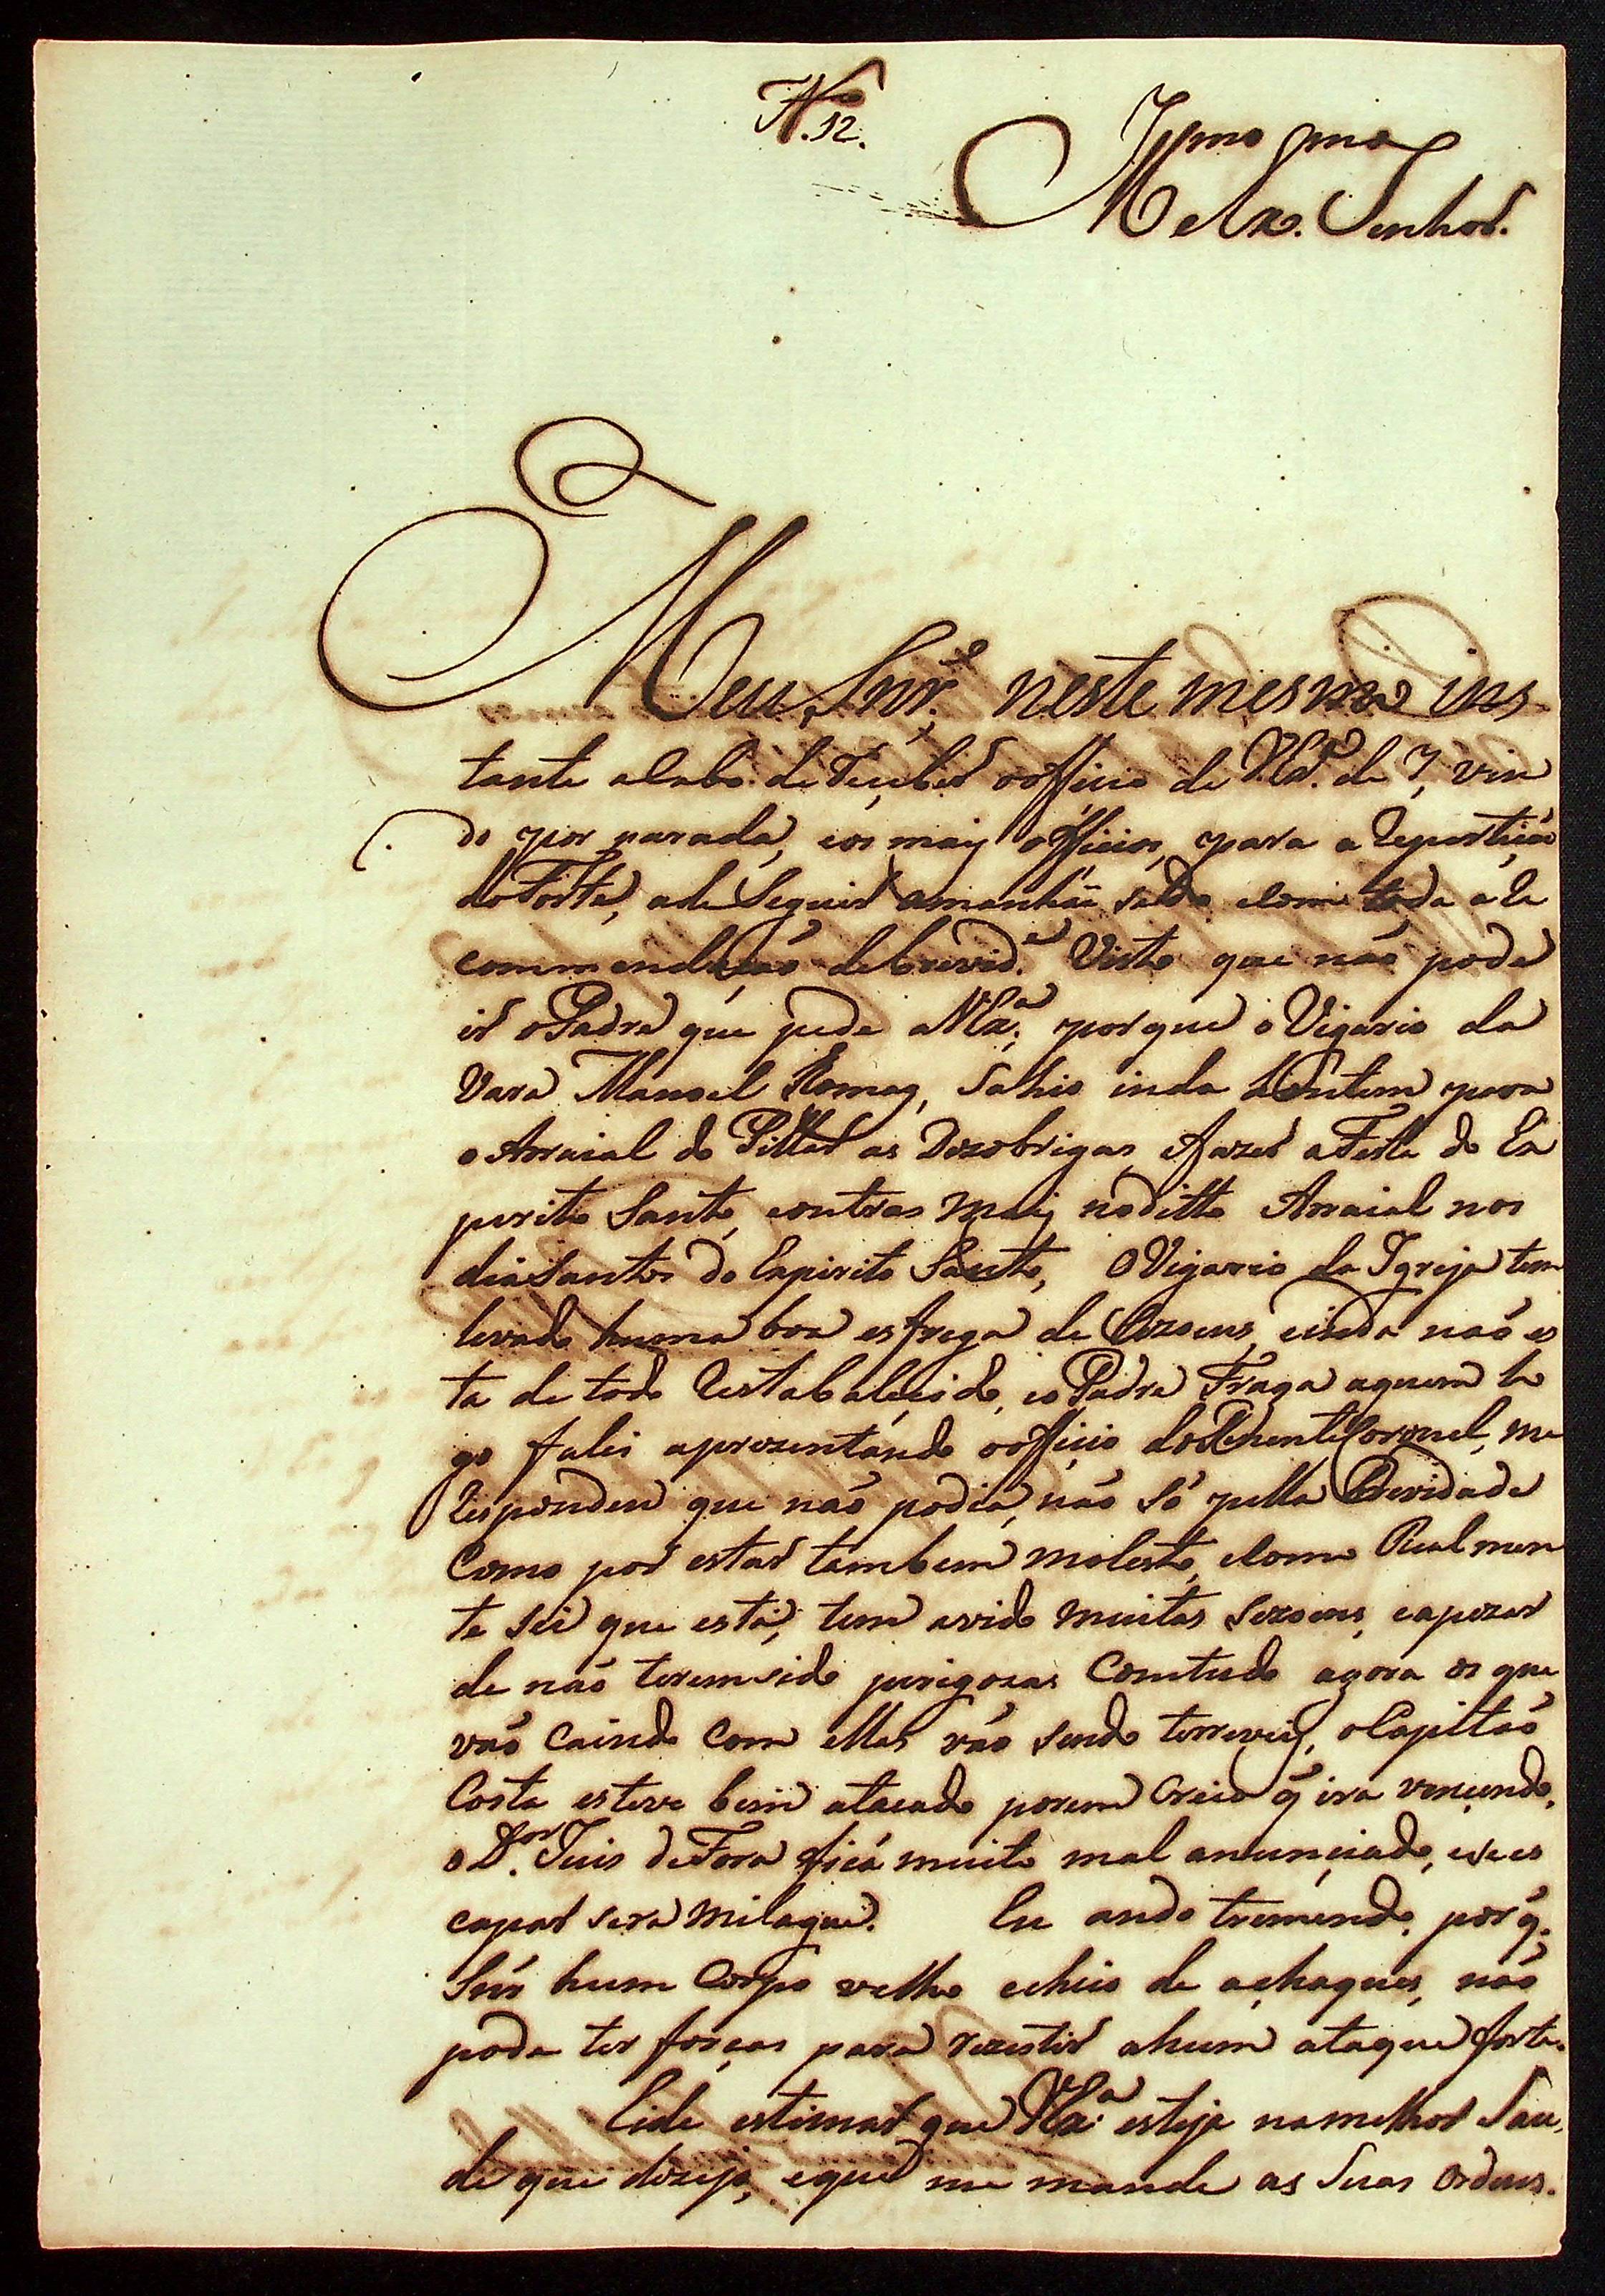 N.º 12.
Illmo Exmo
Senhor.
Meu Snr.ᵉ neste mesmo ins
tante acabo de Receber o officio de V. Ex.ª de 7, vin
do por parada, e os mais officios, para a repartição
do Forte, a de Seguir amanhãa sedo e Com toda a re
commendação de brevid.ᵉ Visto que não pode
ir o Padre que pede a V. Ex.ª; porque o Vigario da
Vara Manoel sahio inda hontem para
o Arraial do Pillar as Dezobrigas, e fazer a Festa do Es
perito Santo, e outras mais no ditto Arraial nos
dia Santos do Espirito Santo, O Vigario da Igreja tem
levado huma boa esfrega de Cezoens, e inda não es
ta de todo restabalecido, e o Padre Fraga aquem lo
go falei aprezentando o officio do Thenente Coronel, me
respondeu que não podia, não só pella Brevidade
Como por estar tambem molesto, e Como Realmen
te sei que está, tem avido muitas Sezoens, e apezar
de não terem sido perigozas Comtudo agora os que
vão Caindo Com ellas vão sendo terriveis, o Capitão
Costa esteve bem atacado porem Creio q̃ ira vencendo,
o D.ᵒʳ Juis de Fora fica muito mal anunciado, e se es
capar sera milagre. Eu ando tremendo, por q̃.
hum Corpo velho e cheio de achaques, não
pode ter forças para rezestir ahum ataque forte.
Eide estimar que V. Ex.ª esteja na melhor Sau
de que dezejo, e que me mande as Suas Ordens.